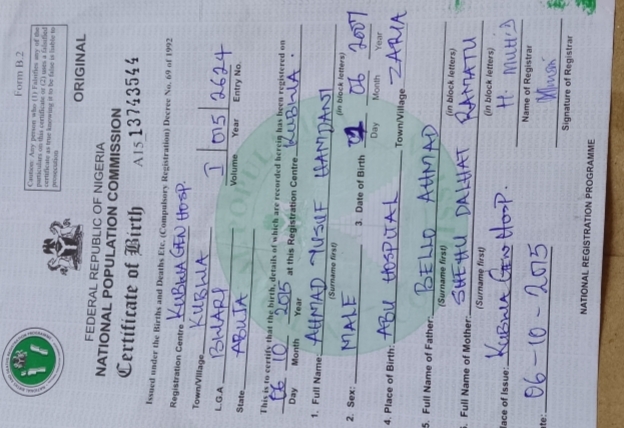 Form B 2
Caution: Any person who (1) Falsifies any of the
particulars on this certificate or (2) uses a falsified
certificate as true knowing it to be false is liable to
prosecution
ORIGINAL
FEDERAL REPUBLIC OF NIGERIA
NATIONAL POPULATION COMMISSION
Certificate of Birth A15 13743544
Issued under the Births and Deaths Etc. (Compulsory Registration) Decree No. 69 of 1992
Registration Centre KUBWA GEN HOSP.
Town/Village KUBWA
L.G.A BWARI I 015 2624
State ABUJA Volume Year Entry No.
This is to certify that the birth, details of which are recorded herein has been registered on
06 10 2015 at this Registration Centre KUBWA.
Day Month Year
1. Full Name: AHMAD YUSUF HAMDANI
(Surname first) (in block letters)
2. Sex: MALE 3. Date of Birth 06 2007
Day Month Year
4. Place of Birth: ABU HOSPITAL Town/Village ZARIA
5. Full Name of Father: BELLO AHMAD
(Surname first) (in block letters)
. Full Name of Mother: SHEHU DALHAT RAMATU
(Surname first) (in block letters)
lace of Issue: KUBWA GEN HOSP. H. MUH'D
Name of Registrar
te: 06-10-2015
Signature of Registrar
NATIONAL REGISTRATION PROGRAMME